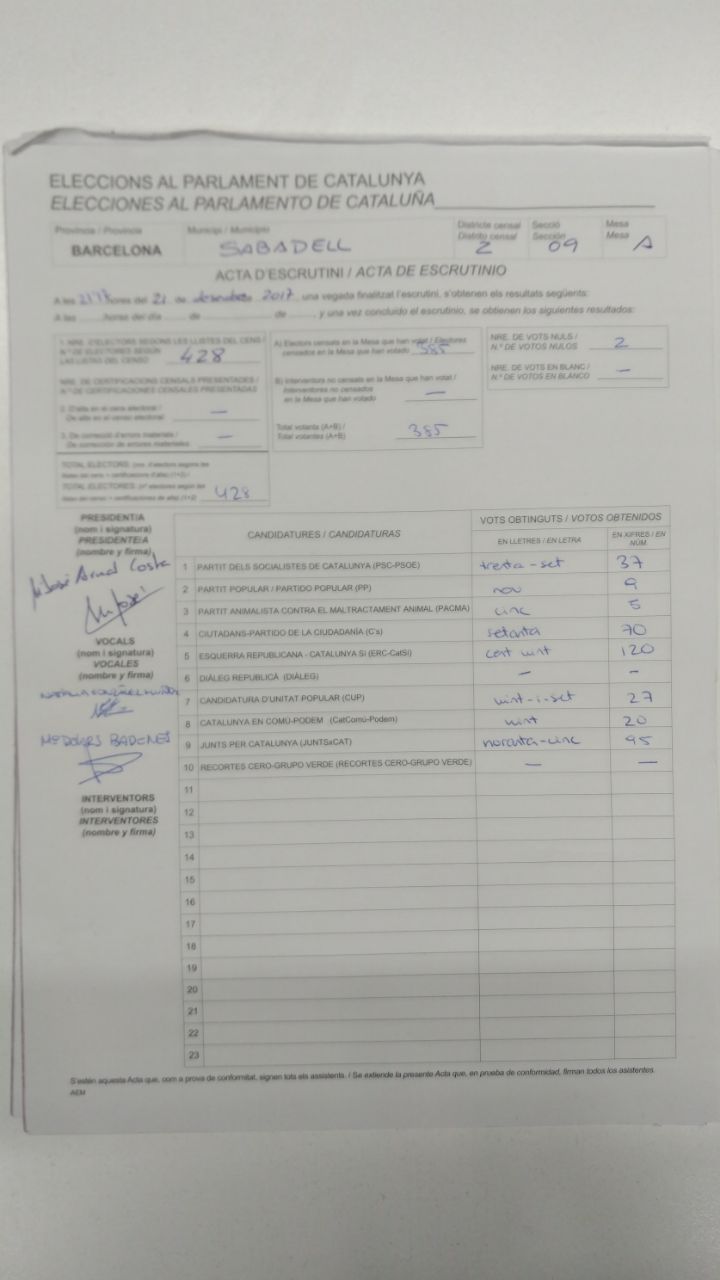 ELECCIONS AL PARLAMENT DE CATALUNYA
ELECCIONES AL PARLAMENTO DE CATALUÑA
Província / Provincia Municipi / Municipio Districte censal Secció Mesa
Distrito censal Sección Mesa
BARCELONA SABADELL 2 09 A
ACTA D'ESCRUTINI / ACTA DE ESCRUTINIO
A les hores del 21 de desembre 2017, una vegada finalitzat l'escrutini, s'obtenen els resultats següents:
A las horas del día de de , y una vez concluido el escrutinio, se obtienen los siguientes resultados:
1. NRE. D'ELECTORS SEGONS LES LLISTES DEL CENS /
N.º DE ELECTORES SEGÚN
LAS LISTAS DEL CENSO 428
NRE. DE CERTIFICACIONS CENSALS PRESENTADES /
N.º DE CERTIFICACIONES CENSALES PRESENTADAS
2. D'alta en el cens electoral / —
De alta en el censo electoral
3. De correcció d'errors materials / —
De corrección de errores materiales
TOTAL ELECTORS
TOTAL ELECTORES 428
A) Electors censats en la Mesa que han votat / Electores
censados en la Mesa que han votado 385
B) Interventors no censats en la Mesa que han votat /
Interventores no censados
en la Mesa que han votado —
Total votants (A+B) /
Total votantes (A+B) 385
NRE. DE VOTS NULS /
N.º DE VOTOS NULOS 2
NRE. DE VOTS EN BLANC /
N.º DE VOTOS EN BLANCO —
PRESIDENT/A
(nom i signatura)
PRESIDENTE/A
(nombre y firma)
VOCALS
(nom i signatura)
VOCALES
(nombre y firma)
Mª DOLORS BADENES
INTERVENTORS
(nom i signatura)
INTERVENTORES
(nombre y firma)
CANDIDATURES / CANDIDATURAS VOTS OBTINGUTS / VOTOS OBTENIDOS
EN LLETRES / EN LETRA EN XIFRES / EN NÚM.
1 PARTIT DELS SOCIALISTES DE CATALUNYA (PSC-PSOE) trenta-set 37
2 PARTIT POPULAR / PARTIDO POPULAR (PP) nou 9
3 PARTIT ANIMALISTA CONTRA EL MALTRACTAMENT ANIMAL (PACMA) cinc 5
4 CIUTADANS-PARTIDO DE LA CIUDADANÍA (C's) setanta 70
5 ESQUERRA REPUBLICANA - CATALUNYA SÍ (ERC-CatSí) cent vint 120
6 DIÀLEG REPUBLICÀ (DIÀLEG) — —
7 CANDIDATURA D'UNITAT POPULAR (CUP) vint-i-set 27
8 CATALUNYA EN COMÚ-PODEM (CatComú-Podem) vint 20
9 JUNTS PER CATALUNYA (JUNTSxCAT) noranta-cinc 95
10 RECORTES CERO-GRUPO VERDE (RECORTES CERO-GRUPO VERDE) — —
11
12
13
14
15
16
17
18
19
20
21
22
23
S'estén aquesta Acta que, com a prova de conformitat, signen tots els assistents. / Se extiende la presente Acta que, en prueba de conformidad, firman todos los asistentes.
AEM